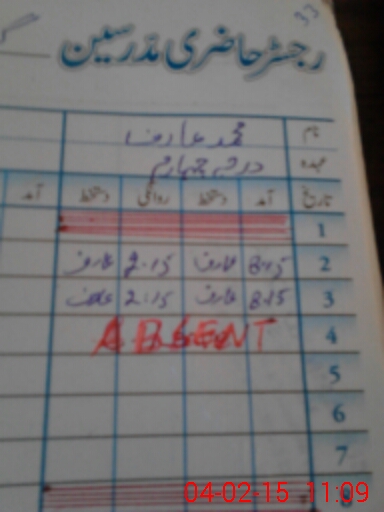 33
رجسٹر حاضری مدرسین
نام محمد عارف
عہدہ درجہ چہارم
تاریخ آمد دستخط روانگی دستخط آمد
1
2 8.15 عارف 2.15 عارف
3 8.15 عارف 2.15 عارف
4 ABSENT
5
6
7
8
04-02-15 11:09